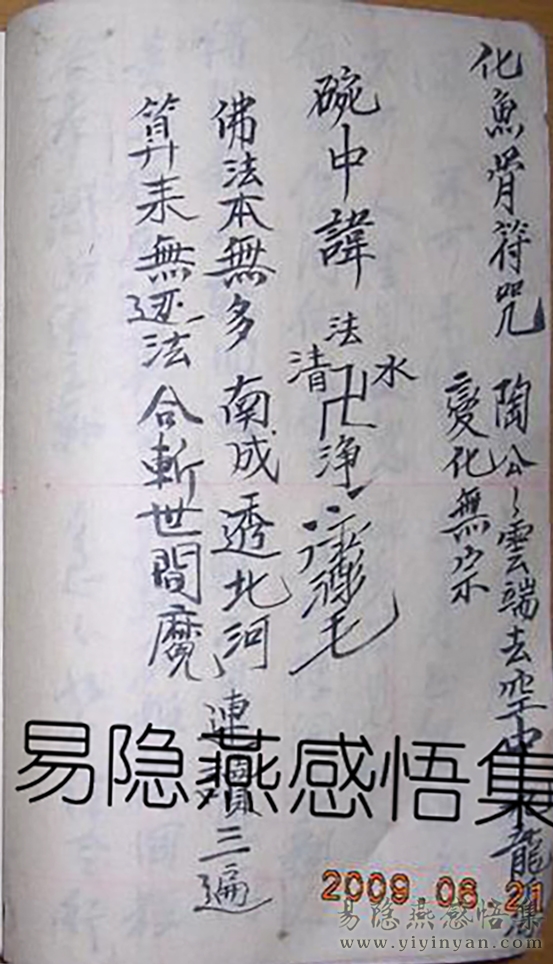 化魚骨符咒
陶公々雲端去空中 龍
變化無宗
碗中諱
法
清 卍 水
淨
佛法本無多 南成透北河
連 三遍
算来無迹法 合斬世間魔
易隐燕感悟集
2009.08.21
易隐燕感悟集
www.yiyinyan.com